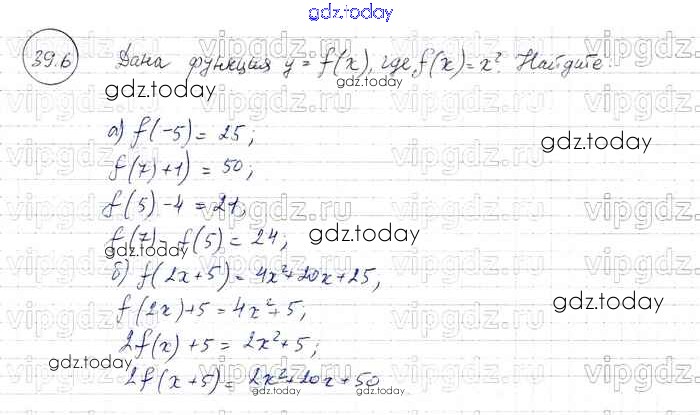 gdz.today
39.6 Дана функция y = f(x), где f(x) = x². Найдите:
gdz.today gdz.today
а) f(-5) = 25;
gdz.today
f(7)+1) = 50;
f(5)-4 = 21;
f(7) - f(5) = 24;
gdz.today
gdz.today
б) f(2x+5) = 4x²+20x+25;
f(2x)+5 = 4x²+5;
gdz.today
2f(x)+5 = 2x²+5;
gdz.today
2f(x+5) = 2x²+20x+50
gdz.today gdz.today
vipgdz.ru